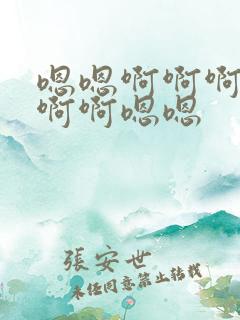 嗯嗯啊啊啊
啊啊嗯嗯
張安世
未经同意禁止转载